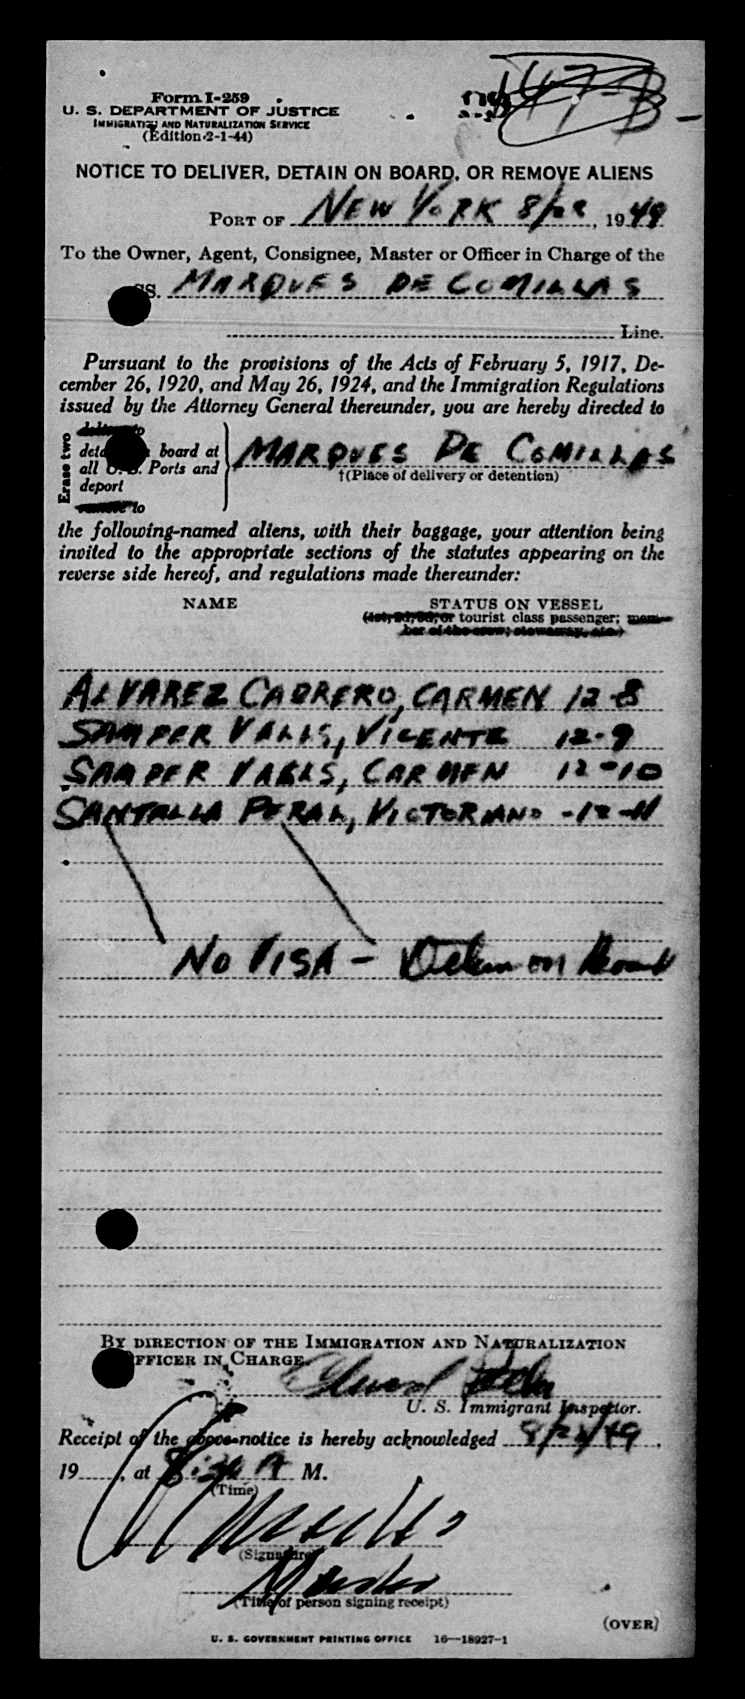 147-B
Form I-259
U. S. DEPARTMENT OF JUSTICE
IMMIGRATION AND NATURALIZATION SERVICE
(Edition 2-1-44)
NOTICE TO DELIVER, DETAIN ON BOARD, OR REMOVE ALIENS
PORT OF NEW YORK 8/22, 1949
To the Owner, Agent, Consignee, Master or Officer in Charge of the
SS. MARQUES DE COMILLAS
Line.
Pursuant to the provisions of the Acts of February 5, 1917, De-
cember 26, 1920, and May 26, 1924, and the Immigration Regulations
issued by the Attorney General thereunder, you are hereby directed to
Erase two
deliver to
detain on board at
all U. S. Ports and
deport
remove to
MARQUES DE COMILLAS
†(Place of delivery or detention)
the following-named aliens, with their baggage, your attention being
invited to the appropriate sections of the statutes appearing on the
reverse side hereof, and regulations made thereunder:
NAME STATUS ON VESSEL
(1st, 2d, 3d, or tourist class passenger; mem-
ber of the crew; stowaway, etc.)
ALVAREZ CABRERO, CARMEN 12-8
SAMPER VALLS, VICENTE 12-9
SAMPER VALLS, CARMEN 12-10
SANTALLA PERAL, VICTORIANO -12-11
NO VISA - Detain on Board
BY DIRECTION OF THE IMMIGRATION AND NATURALIZATION
OFFICER IN CHARGE
U. S. Immigrant Inspector.
Receipt of the above notice is hereby acknowledged 8/22/49,
19 , at A M.
(Time)
(Signature)
Master
(Title of person signing receipt)
(OVER)
U. S. GOVERNMENT PRINTING OFFICE 16—18927-1